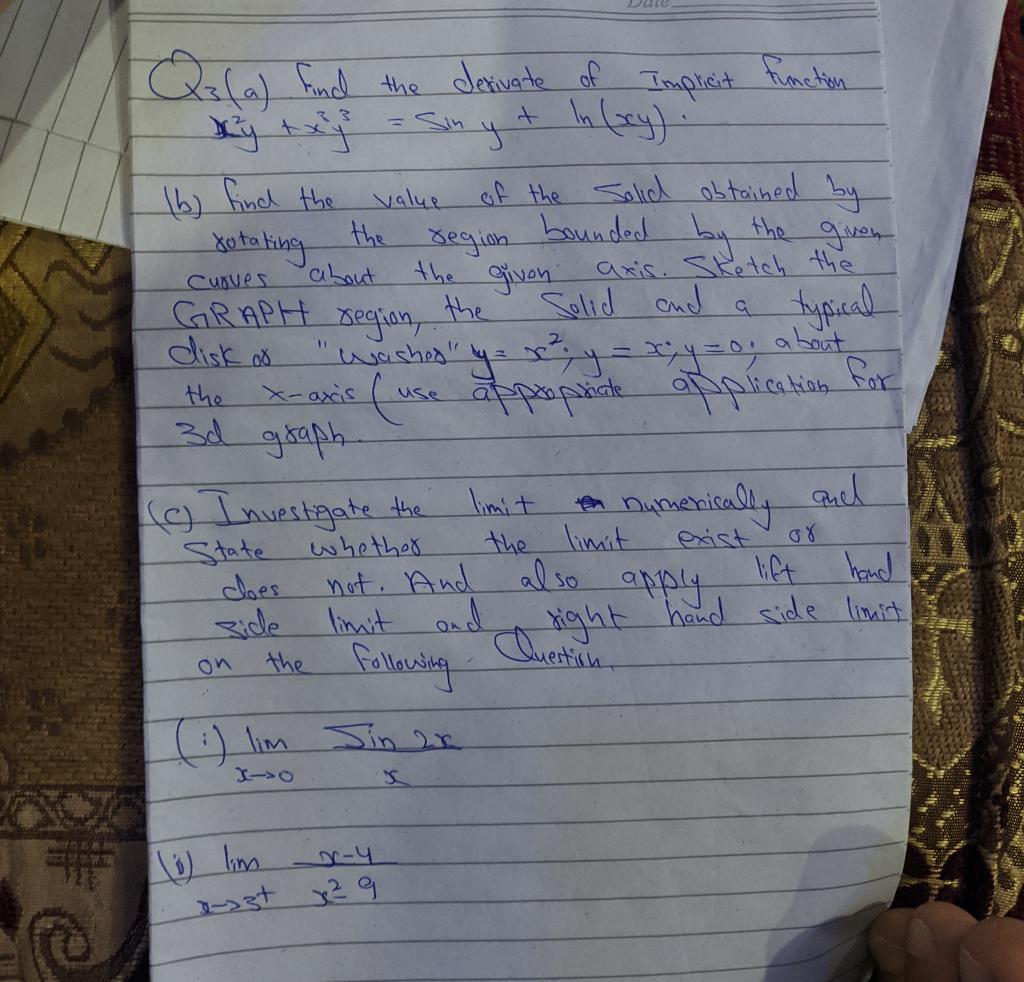 Date
Q3(a) Find the derivate of Implicit function
x²y + x³y³ = Sin y + ln(xy).
(b) Find the value of the Solid obtained by
rotating the region bounded by the given
curves about the given axis. Sketch the
GRAPH region, the Solid and a typical
disk or "washer" y = x²; y = x; y=0; about
the x-axis (use appropriate application for
3d graph.
(c) Investigate the limit numerically and
State whether the limit exist or
does not. And also apply lift hand
side limit and right hand side limit
on the following Question.
(i) lim Sin 2x
x→0 x
(ii) lim x-4
x→3+ x²-9